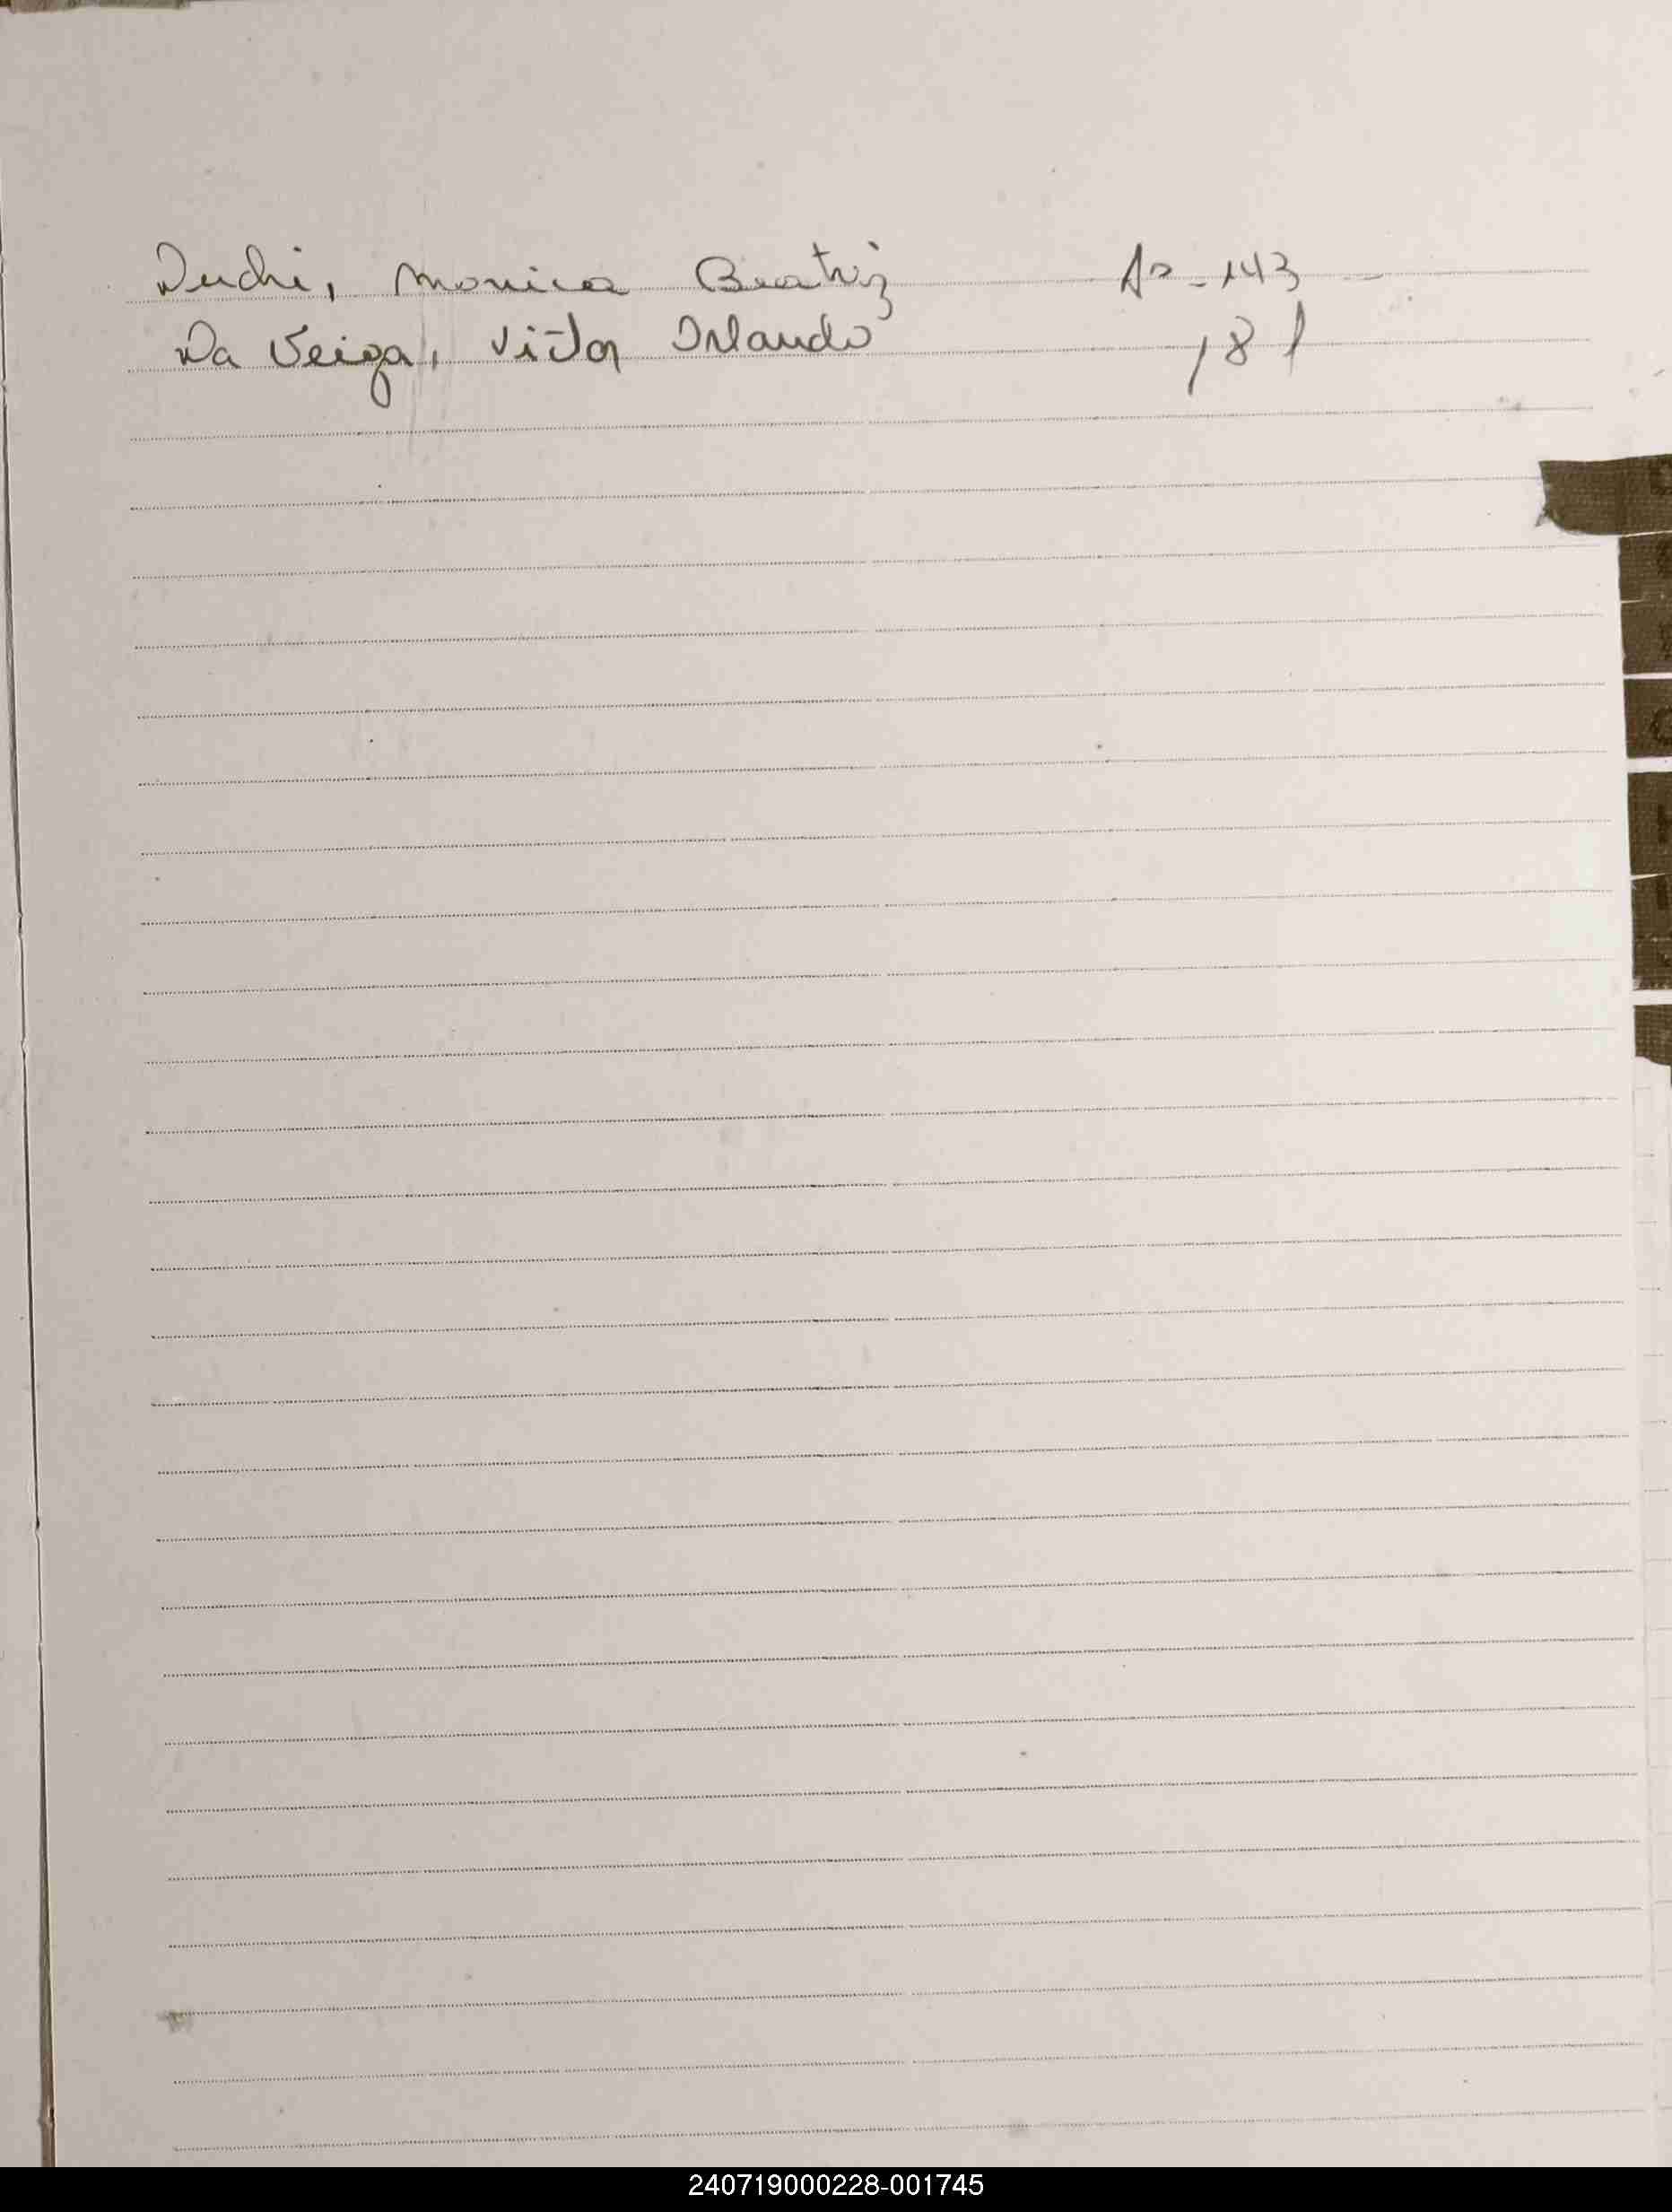 Duchi, Monica Beatriz Aº - 143 -
Da Veiga, Victor Orlando 181
240719000228-001745